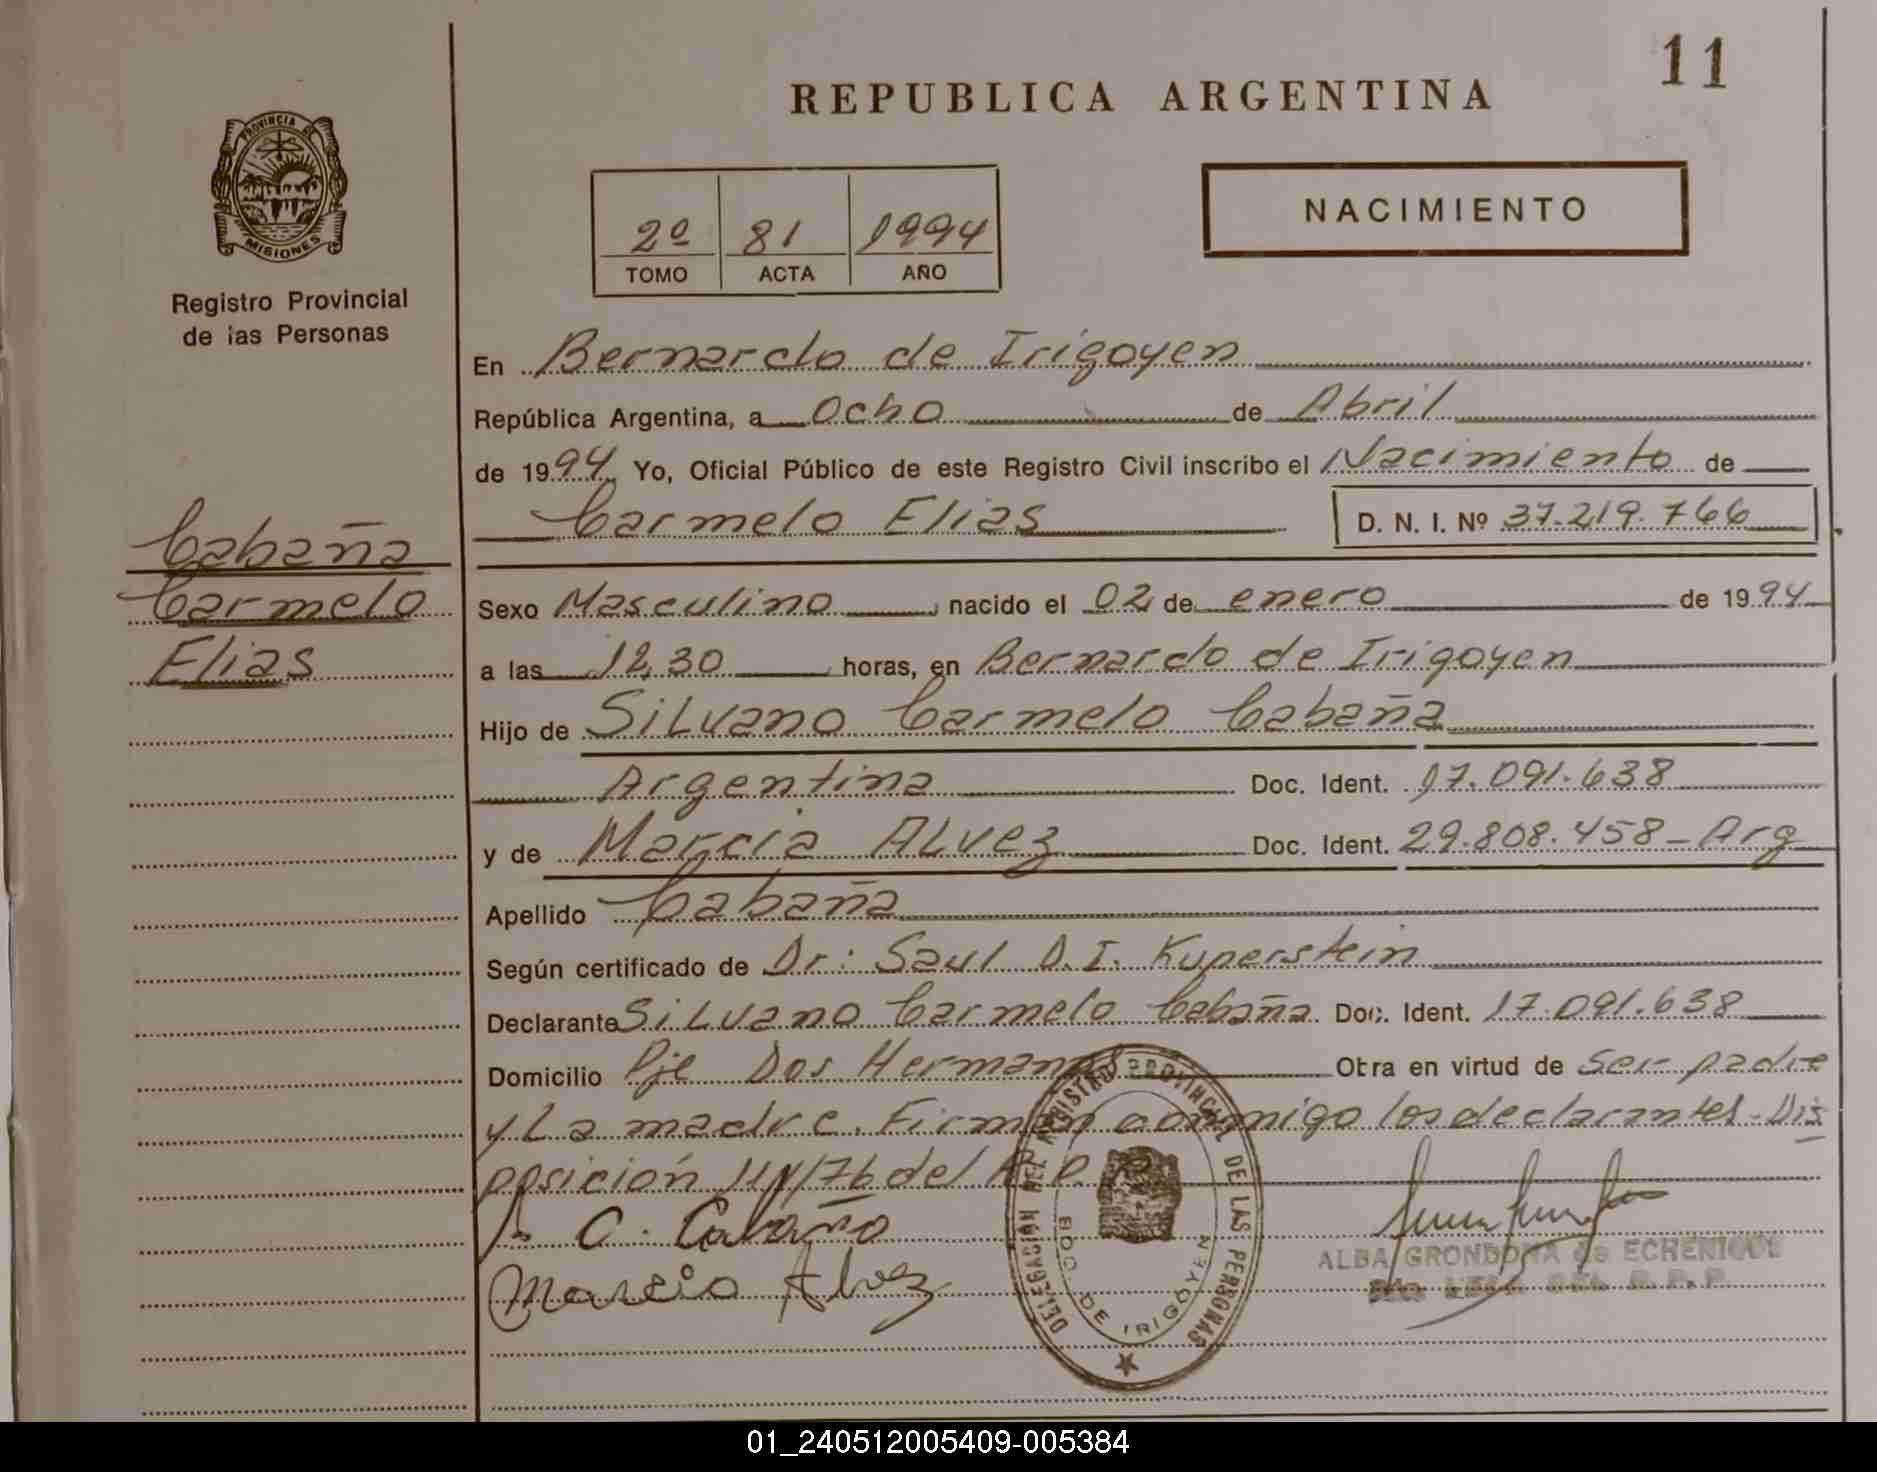 11
REPUBLICA ARGENTINA
PROVINCIA DE
MISIONES
Registro Provincial
de las Personas
2º 81 1994
TOMO ACTA AÑO
NACIMIENTO
En Bernardo de Irigoyen
República Argentina, a Ocho de Abril
de 1994 Yo, Oficial Público de este Registro Civil inscribo el Nacimiento de
Carmelo Elias D. N. I. Nº 37.219.766
Cabaña
Carmelo
Elias
Sexo Masculino, nacido el 02 de enero de 1994
a las 12,30 horas, en Bernardo de Irigoyen
Hijo de Silvano Carmelo Cabaña
Argentina Doc. Ident. 17.091.638
y de Marcia Alvez Doc. Ident. 29.808.458 - Arg
Apellido Cabaña
Según certificado de Dr: Saul D.I. Kuperstein
Declarante Silvano Carmelo Cabaña Doc. Ident. 17.091.638
Domicilio Pje Dos Hermanas Obra en virtud de ser padre
y La madre. Firman conmigo los declarantes - Dis
posición /76 del R.P.
C. Cabaña
Marcia Alvez
DELEGACIÓN DEL REGISTRO PROVINCIAL DE LAS PERSONAS
BDO. DE IRIGOYEN
ALBA GRONDONA de ECHENIQUE
R. P. P.
01_240512005409-005384